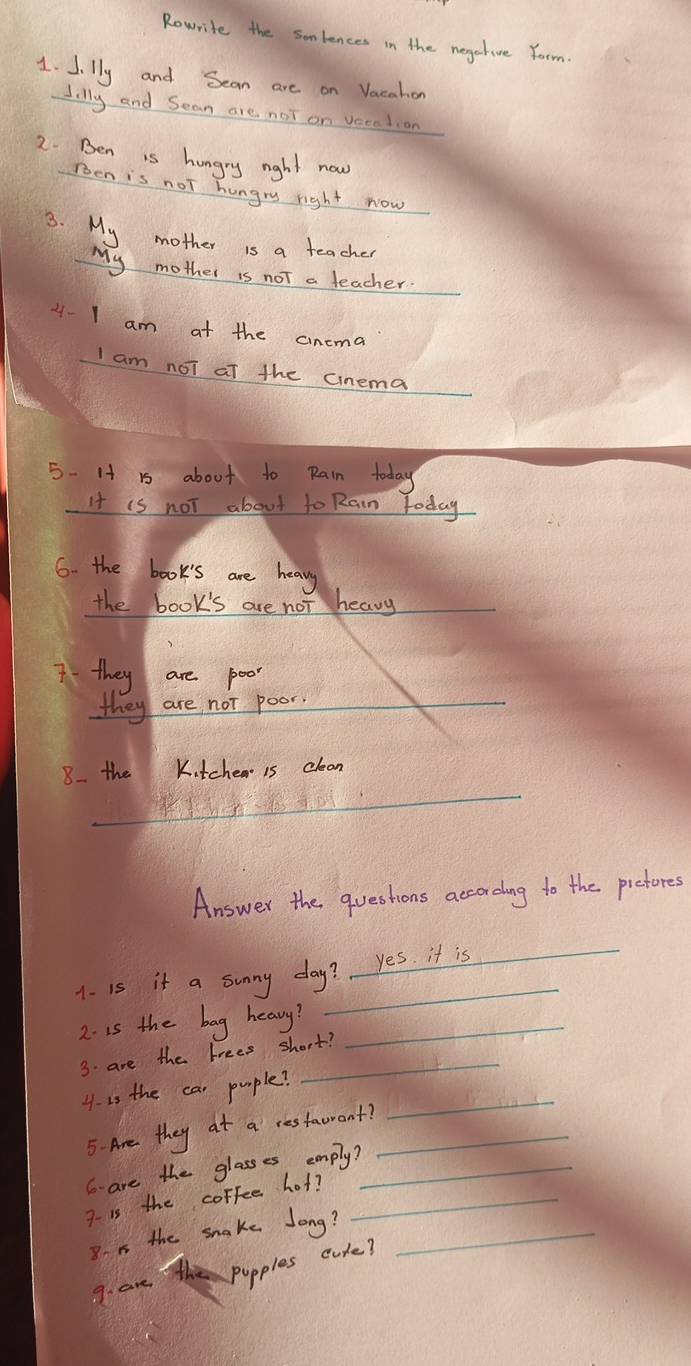 Rowrite the sentences in the negative Form.
1. Jilly and Sean are on Vacation
Jilly and Sean are not on vacation
2. Ben is hungry right now
Ben is not hungry right now
3. My mother is a teacher
My mother is not a teacher.
4- I am at the cinema
I am not at the cinema
5- it is about to Rain today
it is not about to Rain today
6- the book's are heavy
the book's are not heavy
7- they are poor
they are not poor.
8- the Kitchen is clean
Answer the questions according to the pictures
1- is it a sunny day? yes. it is
2. is the bag heavy?
3. are the trees short?
4- is the car purple?
5- Are they at a restaurant?
6- are the glasses emply?
7- is the coffee hot?
8- is the snake long?
9. are the pupples cute?